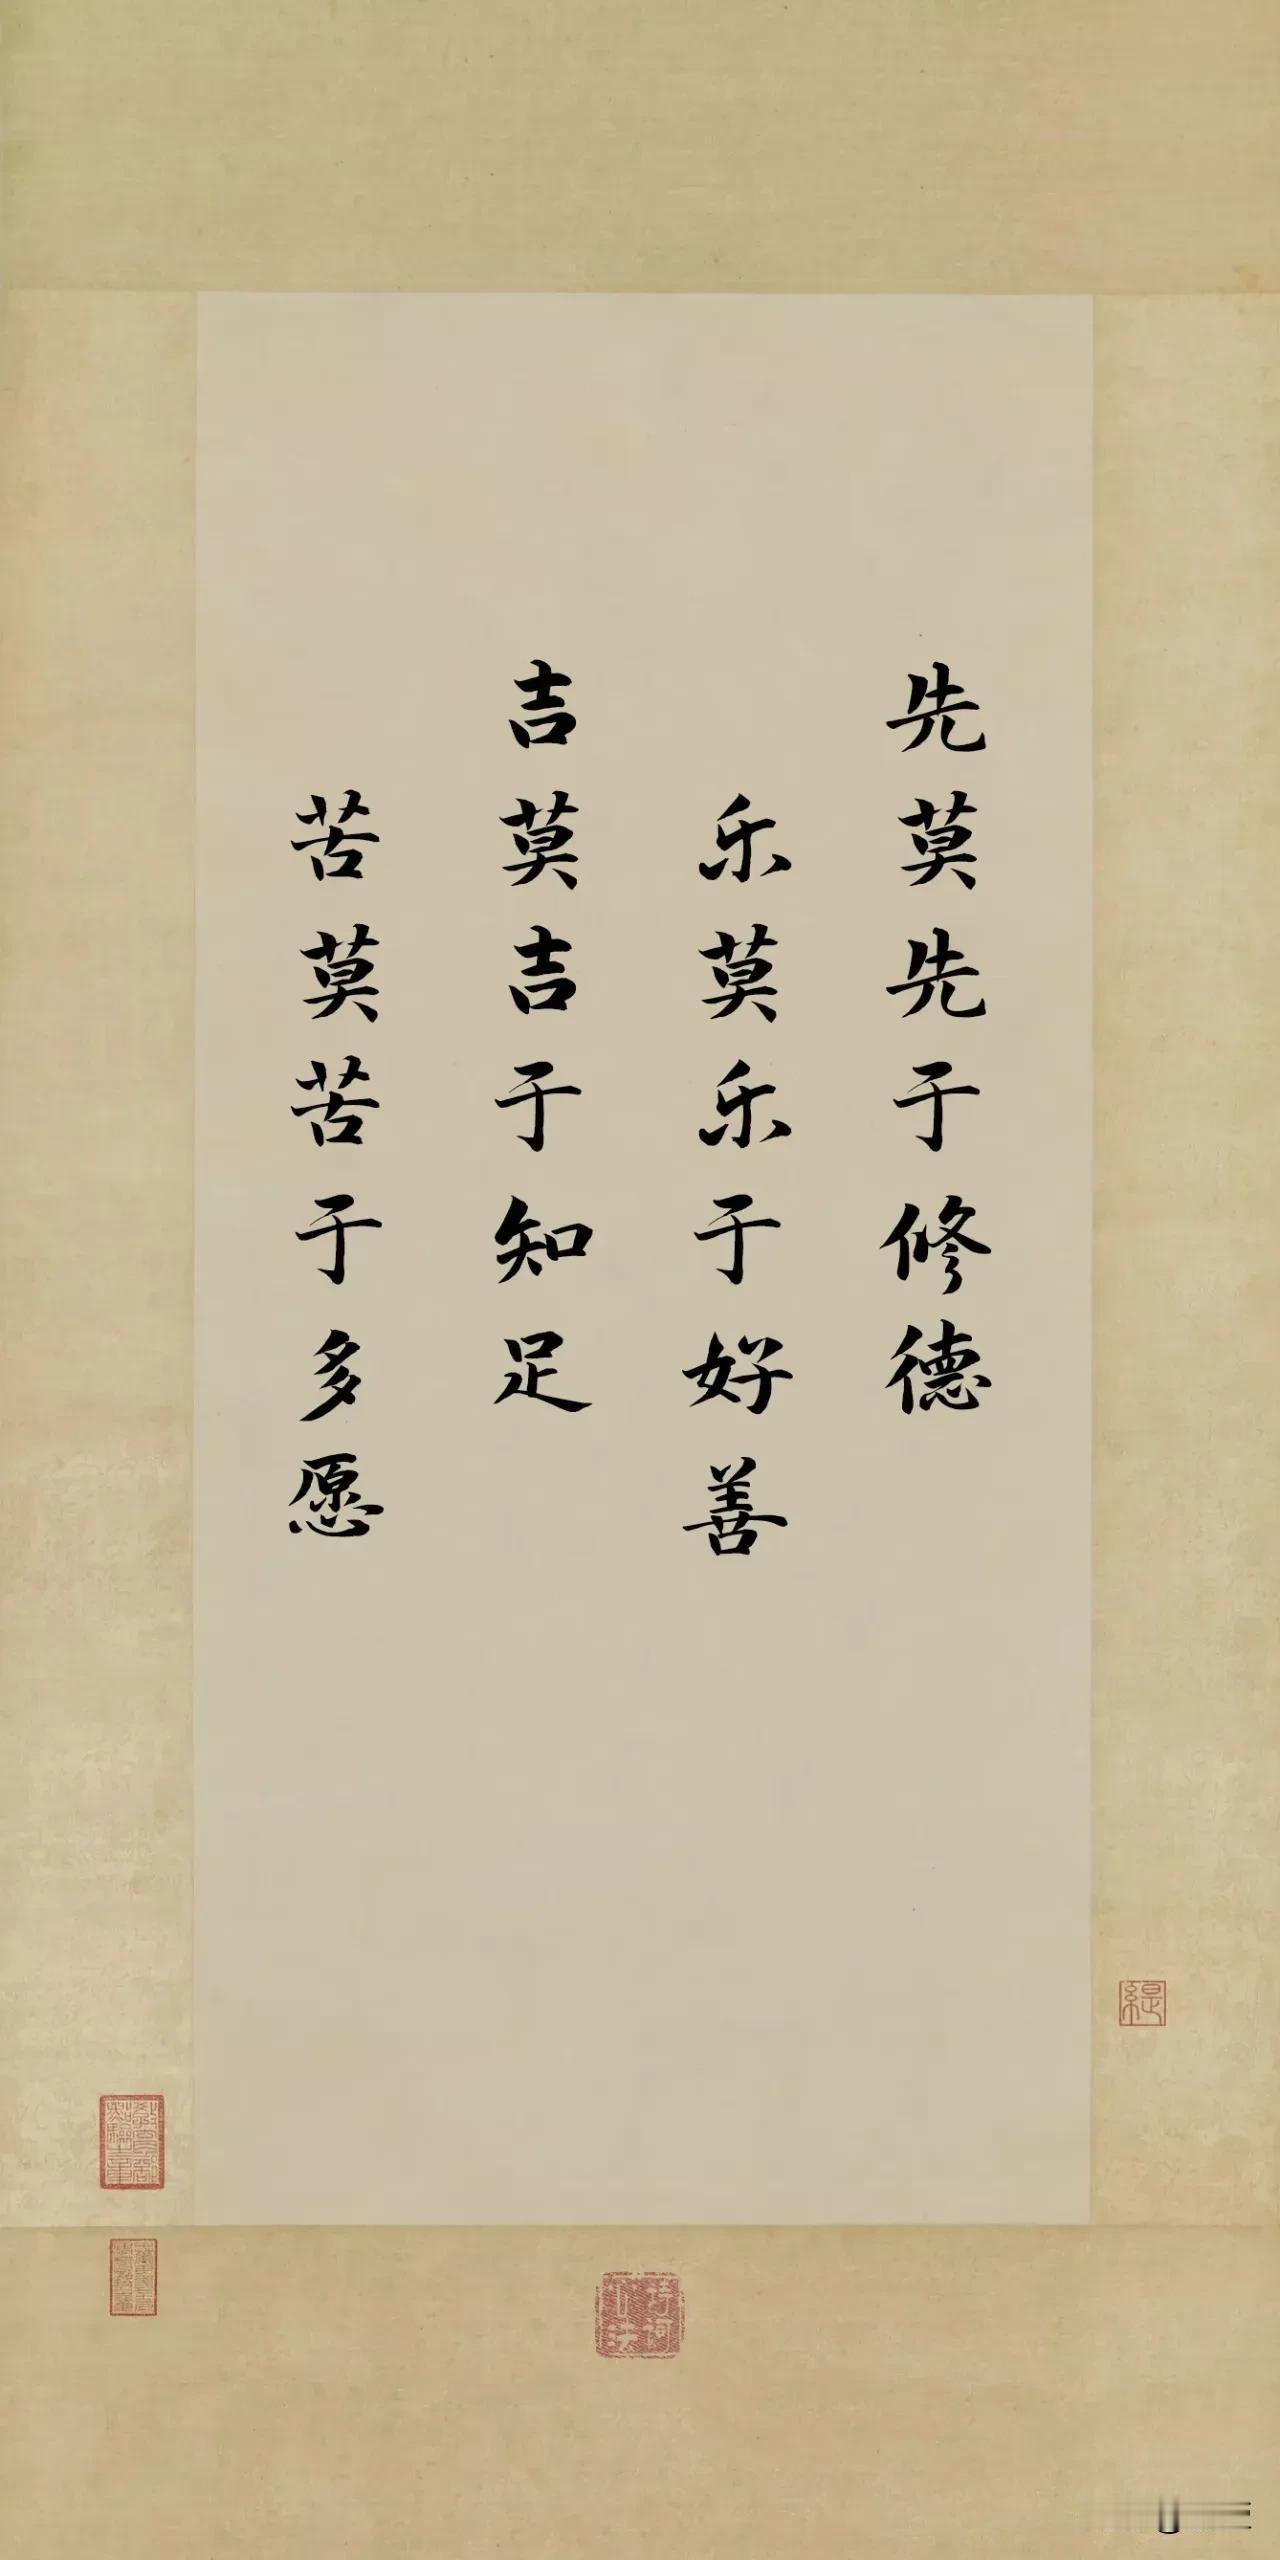 先莫先于修德
乐莫乐于好善
吉莫吉于知足
苦莫苦于多愿